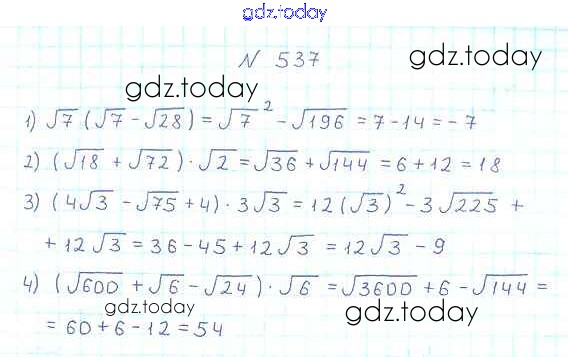 gdz.today
N 537
gdz.today
gdz.today
1) √7 (√7 - √28) = √7² - √196 = 7 - 14 = - 7
2) (√18 + √72) · √2 = √36 + √144 = 6 + 12 = 18
3) (4√3 - √75 + 4) · 3√3 = 12(√3)² - 3√225 +
+ 12√3 = 36 - 45 + 12√3 = 12√3 - 9
4) (√600 + √6 - √24) · √6 = √3600 + 6 - √144 =
gdz.today
gdz.today
= 60 + 6 - 12 = 54